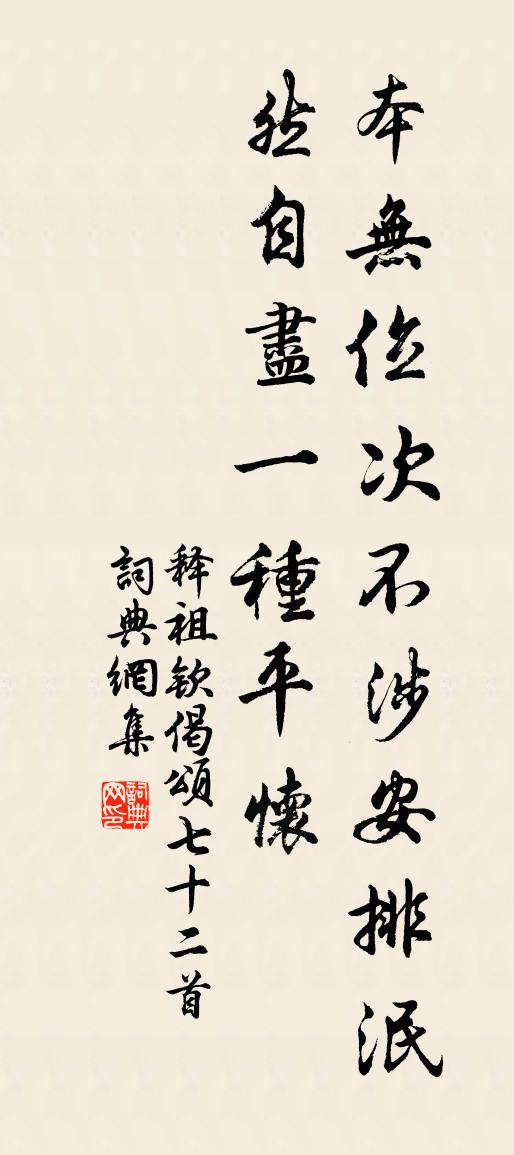 本無位次不涉安排泯
然自盡一種平懷
释祖钦偈頌七十二首
詞典網集
詞典網印